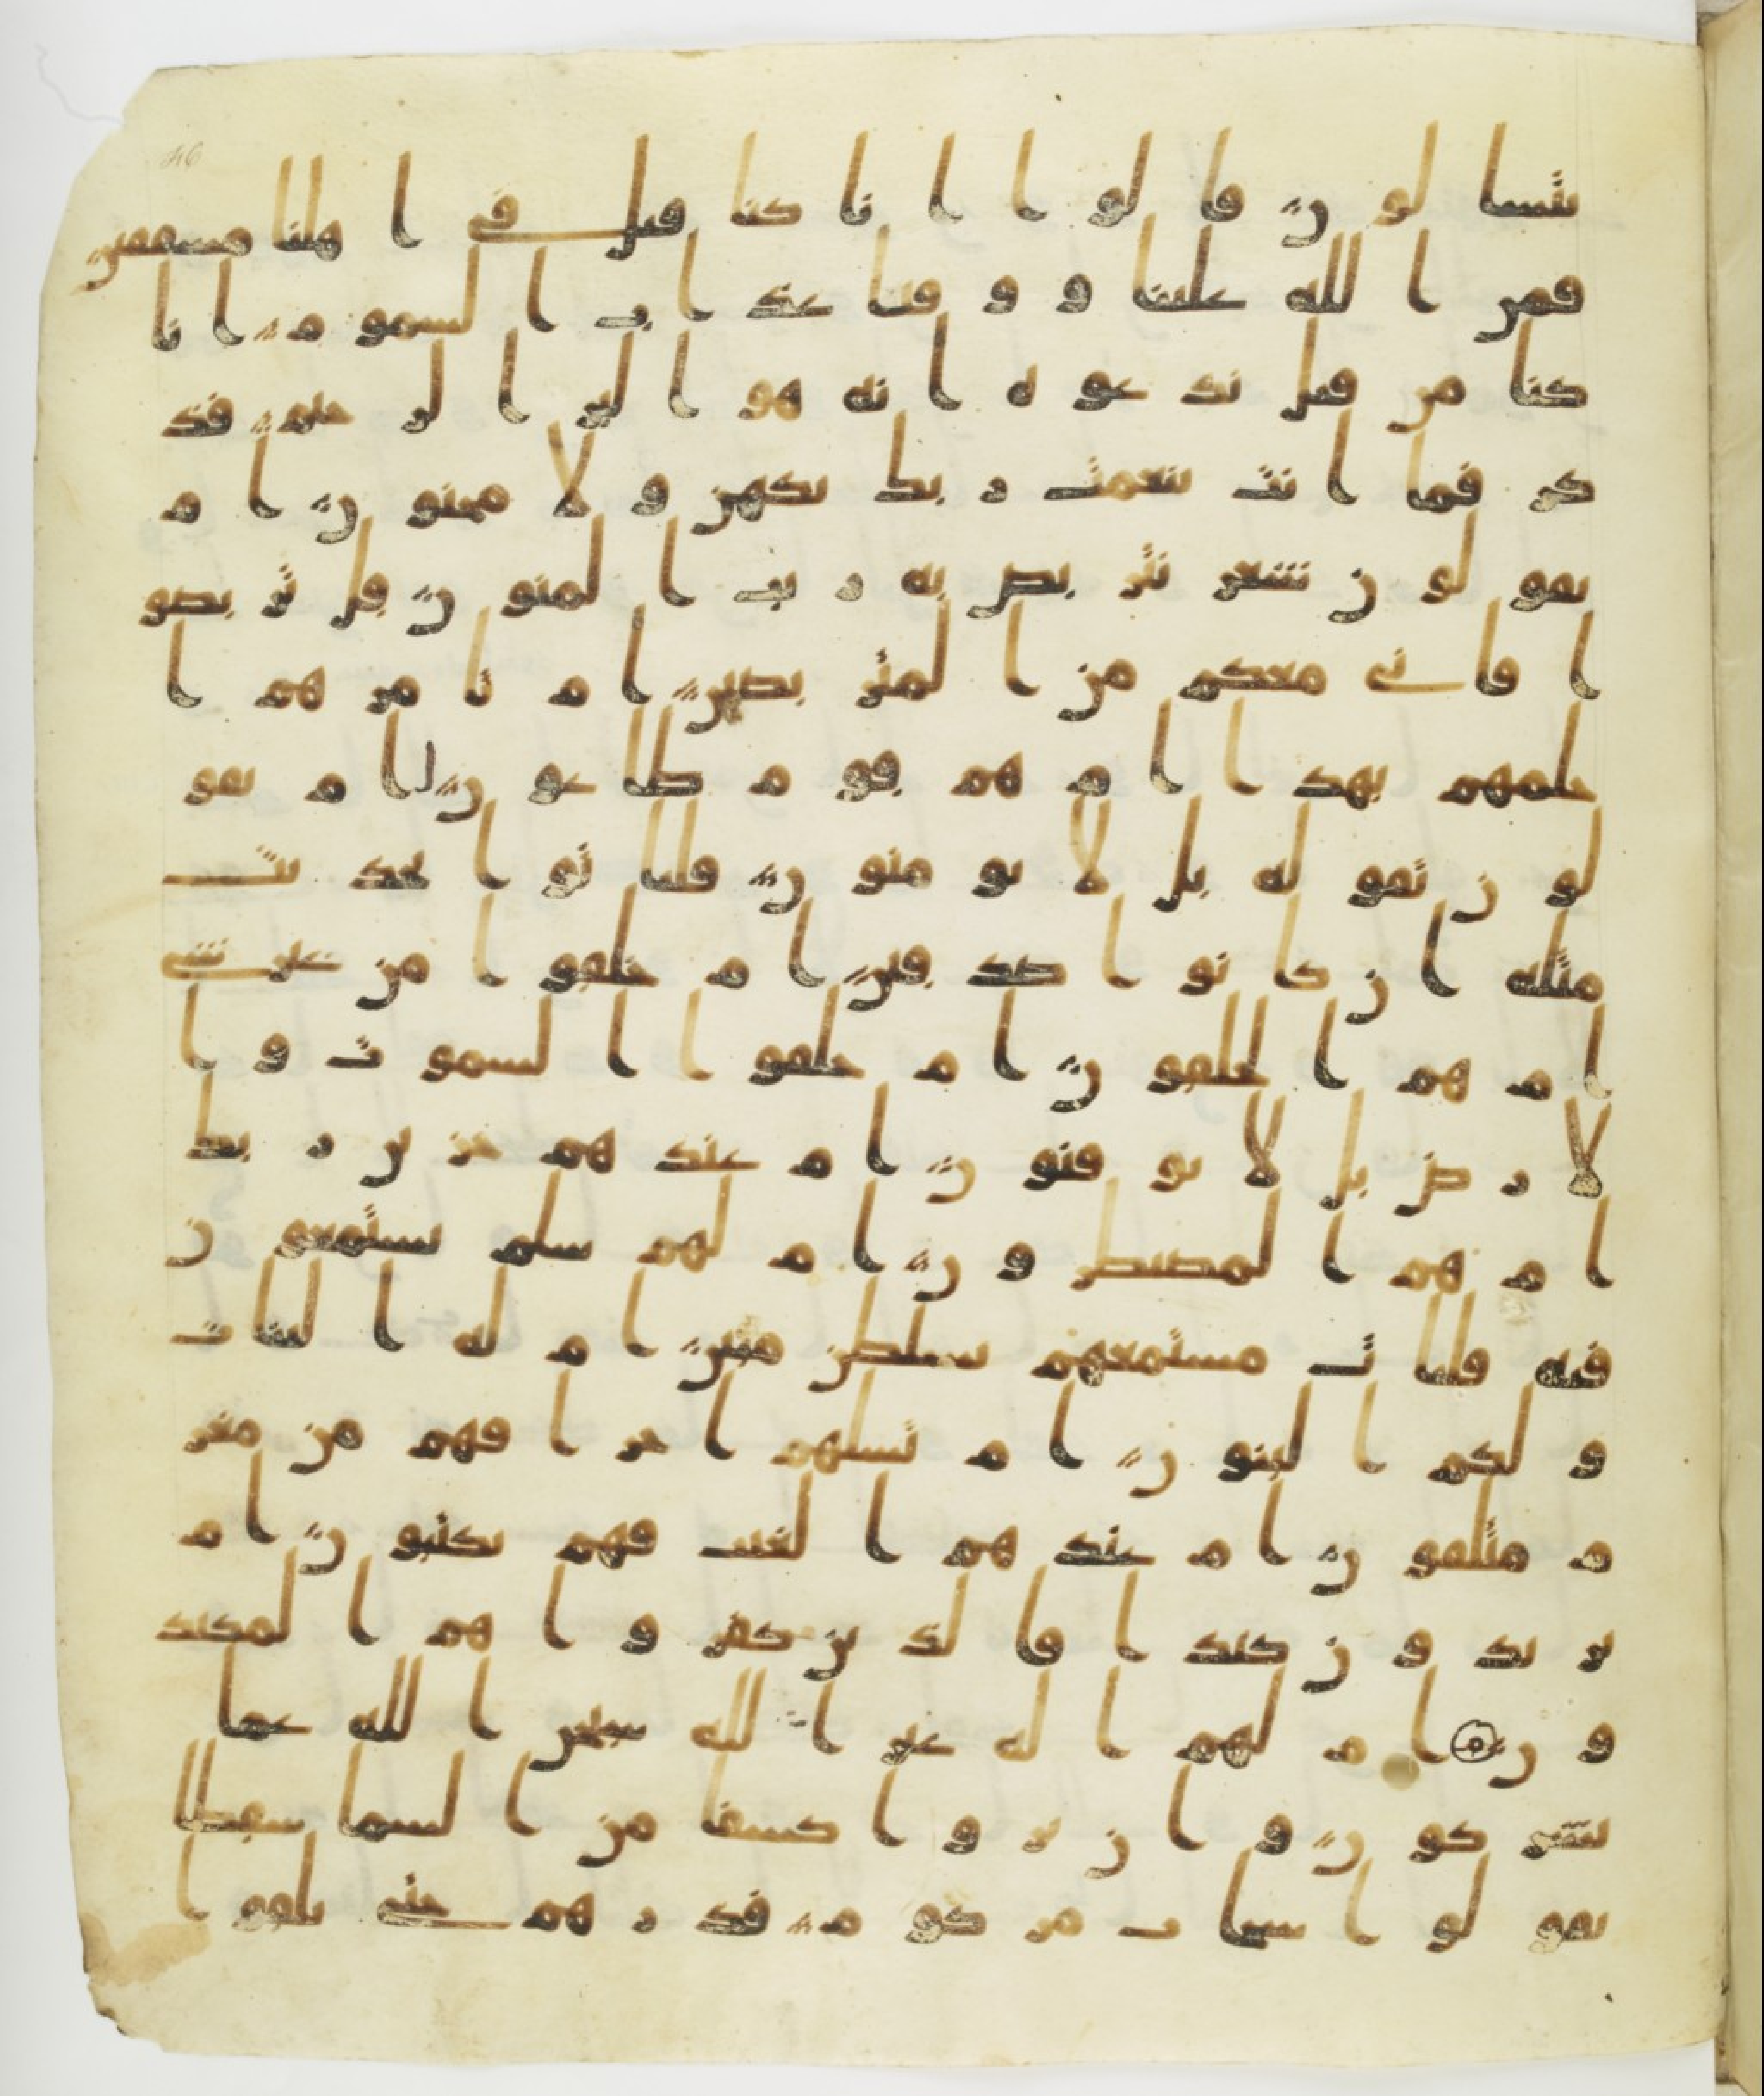 يتسالون قالوا انا كنا قبل في اهلنا مشفقين
فمن الله علينا ووقنا عذاب السموم انا
كنا من قبل ندعوه انه هو البر الرحيم فذ
كر فما انت بنعمت ربك بكهن ولا مجنون ام
يقولون شعر نتربص به ريب المنون قل تربصو
ا فاني معكم من المتربصين ام تامرهم ا
حلمهم بهذا ام هم قوم طاغون ام يقو
لون تقوله بل لا يومنون فلياتوا بحديث
مثله ان كانوا صدقين ام خلقوا من غير شي
ام هم الخلقون ام خلقوا السموت وا
لارض بل لا يوقنون ام عندهم خزين ربك
ام هم المصيطرون ام لهم سلم يستمعون
فيه فليات مستمعهم بسلطن مبين ام له البنات
ولكم البنون ام تسلهم اجرا فهم من مغر
م مثقلون ام عندهم الغيب فهم يكتبون ام
يريدون كيدا فالذين كفروا هم المكيد
ون ام لهم اله غير الله سبحن الله عما
يشركون وان يروا كسفا من السما سقطا
يقولوا سحاب مركوم فذرهم حتى يلقوا